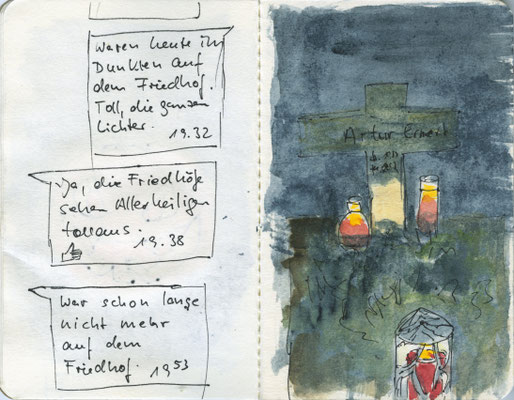 Waren heute im
Dunklen auf
dem Friedhof.
Toll, die ganzen
Lichter. 19.32
Ja, die Friedhöfe
sehen Allerheiligen
toll aus.
19.38
War schon lange
nicht mehr
auf dem
Friedhof. 19 53
Artur